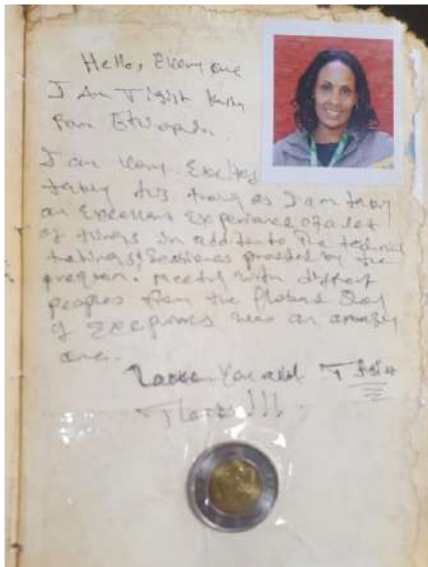 Hello, Every one
I Am Tigist
From Ethiopia.
I am very Excited
taking this training as I am taking
an Excellent Experience of a lot
of things in addition to the technical
trainings, Sessions provided by the
program. Meeting with different
peoples from the Global
of Experiences was an amazing
one.
You all Tigist
Thanks!!!